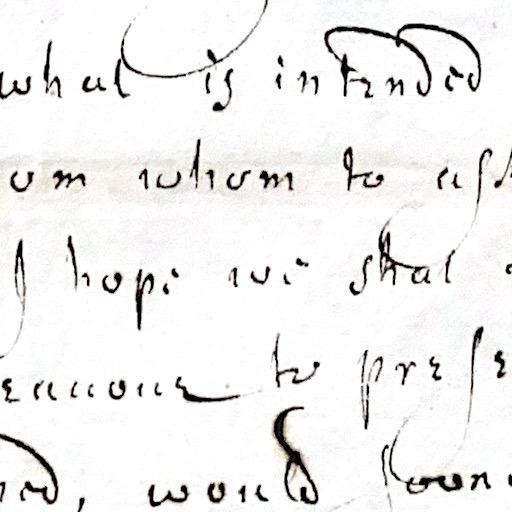 what is intended
om whom to ass
I hope we shal
eauoure to prese
red, would soon